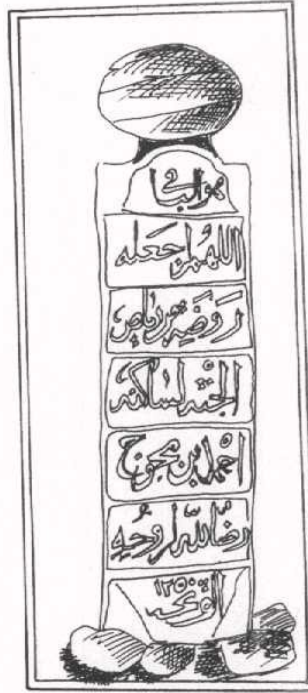 هو الباقي
اللهم اجعله
روضة من رياض
الجنة لساكنه
احمد ابن
رضا لله لروحه
١٢٥٠